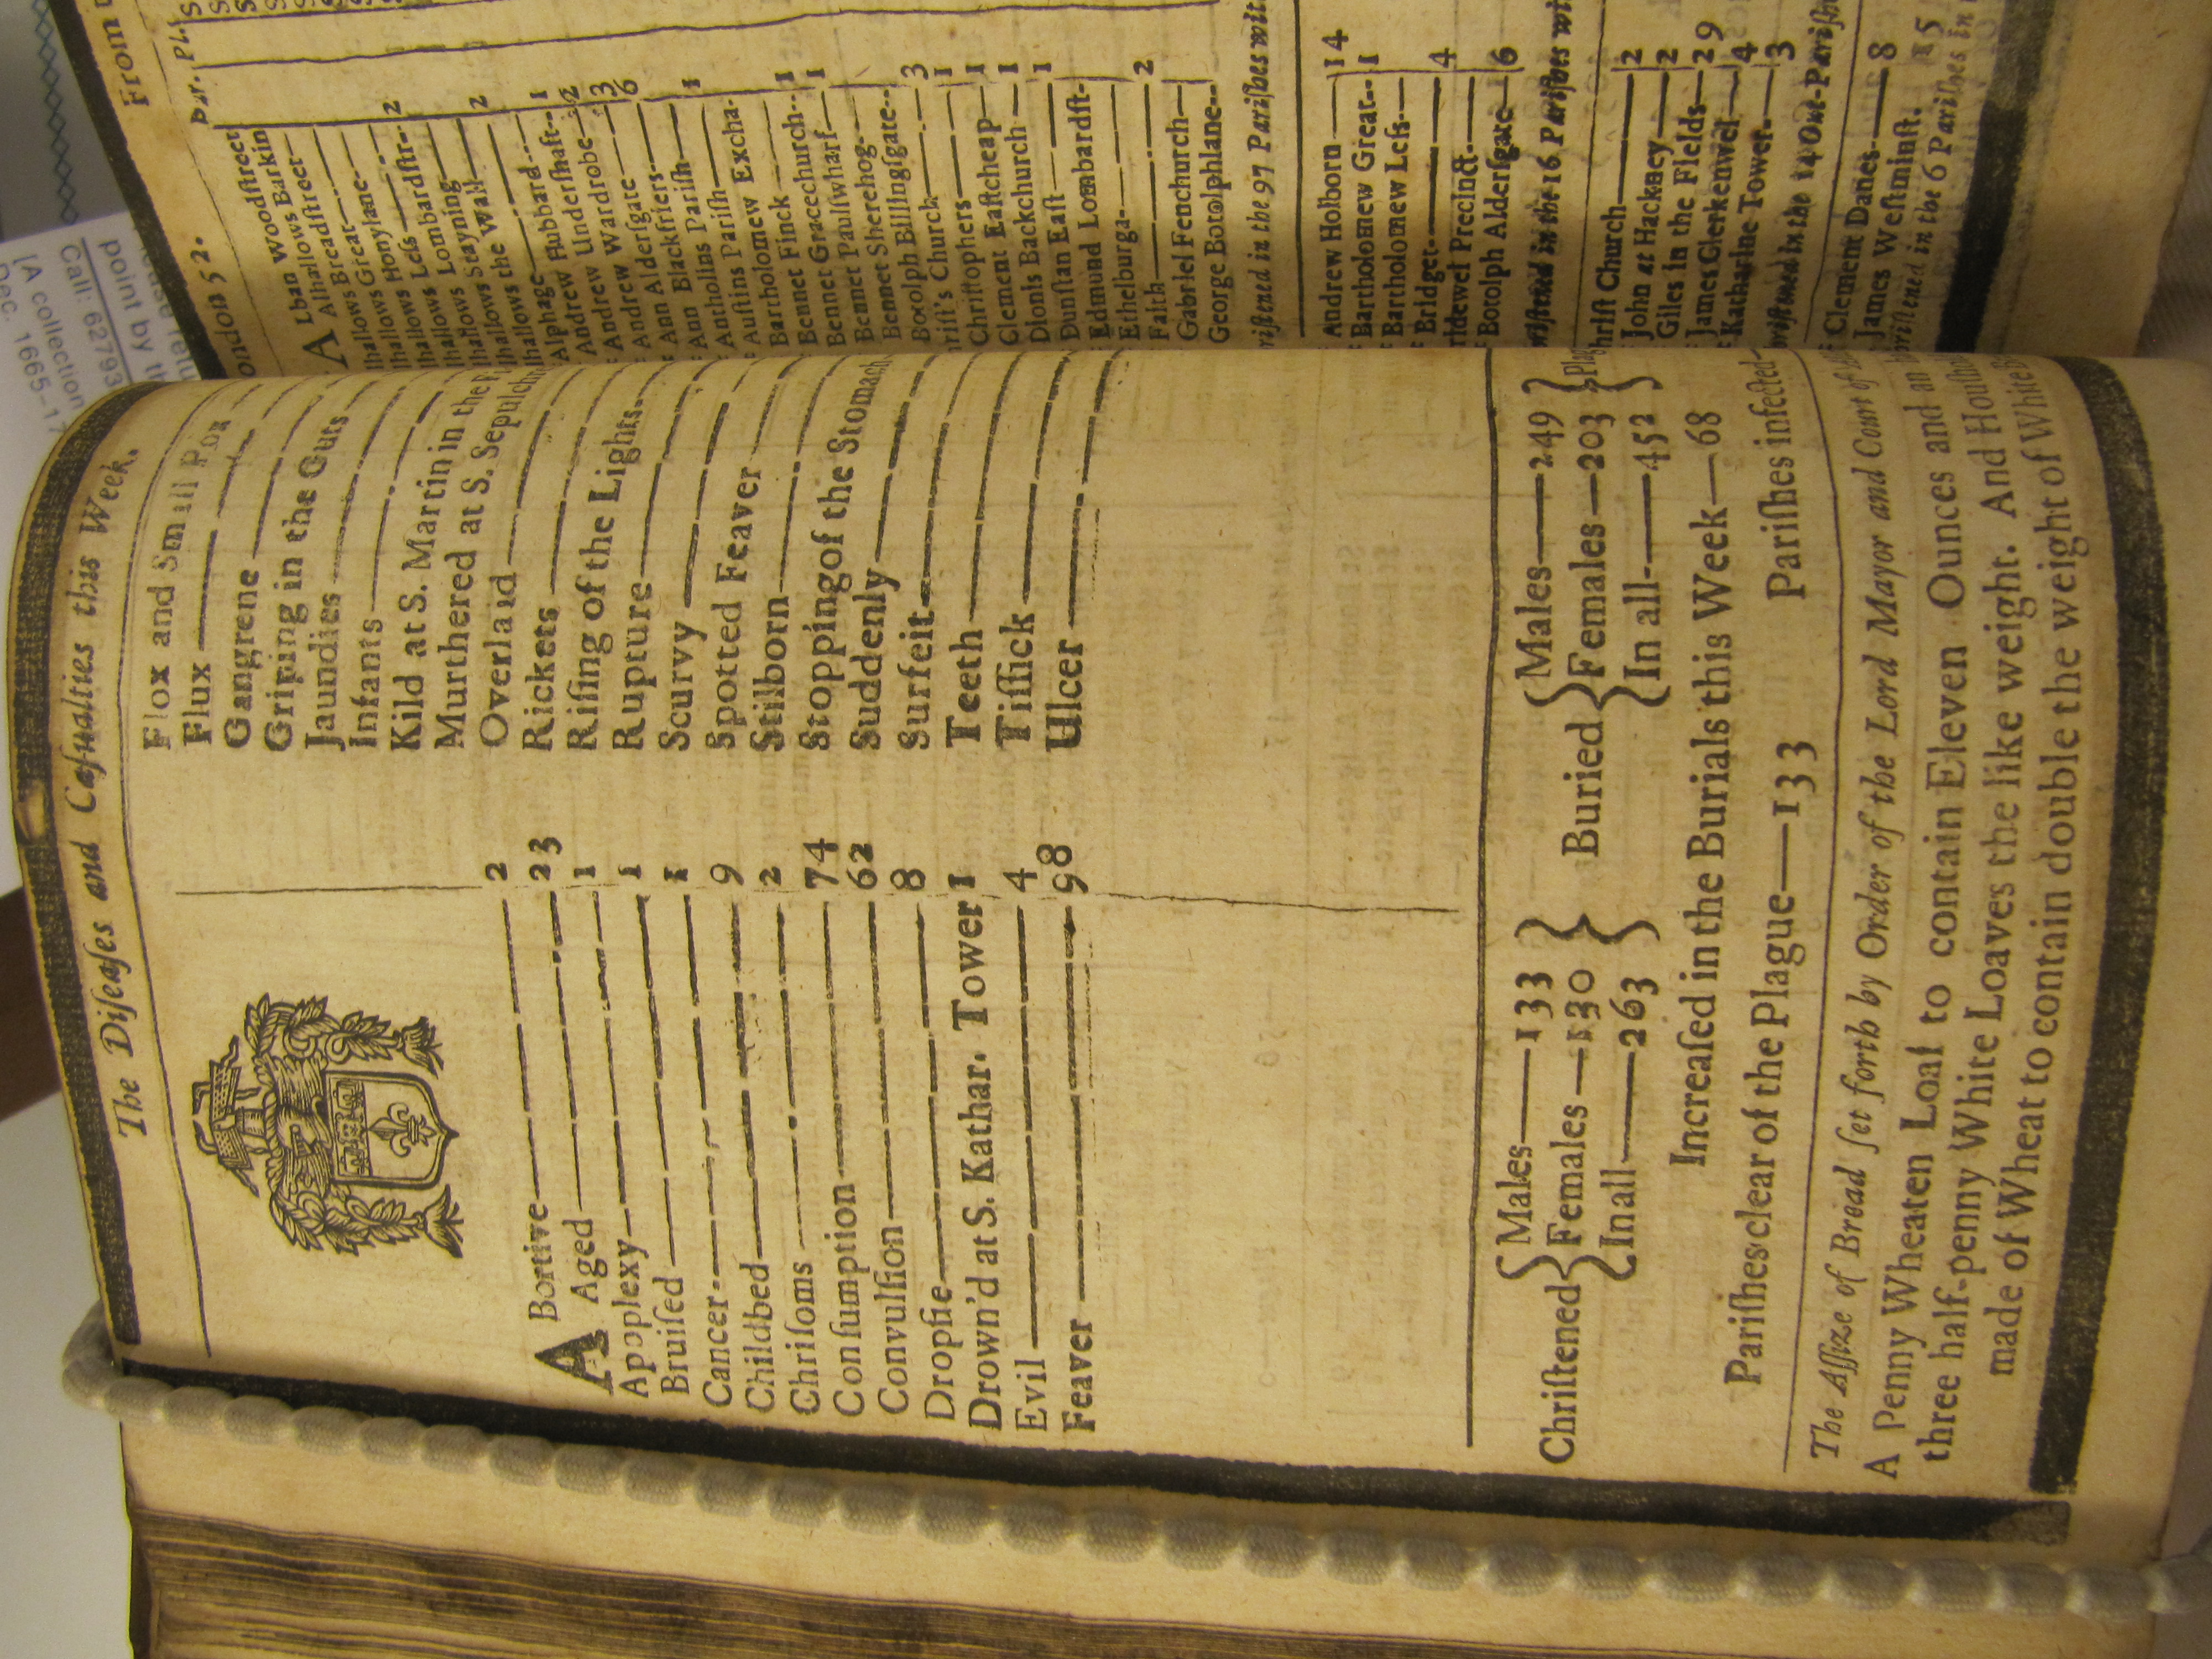 The Diſeaſes and Caſualties this Week.
A Bortive 2
Aged 23
Apoplexy 1
Bruiſed 1
Cancer 9
Childbed 2
Chriſoms
Conſumption 74
Convulſion 62
Dropſie 8
Drown'd at S. Kathar. Tower 1
Evil 4
Feaver 98
Flox and Small Pox
Flux
Gangrene
Griping in the Guts
Jaundies
Infants
Kild at S. Martin in the
Murthered at S. Sepulch
Overlaid
Rickets
Riſing of the Lights
Rupture
Scurvy
Spotted Feaver
Stilborn
Stopping of the Stomach
Suddenly
Surfeit
Teeth
Tiſſick
Ulcer
Chriſtened { Males—133 } Buried { Males—249 }
Females—130 Females—203
In all—263 In all—452
Increaſed in the Burials this Week—68
Pariſhes clear of the Plague—133 Pariſhes infected
The Aſſize of Bread ſet forth by Order of the Lord Mayor and Court of
A Penny Wheaten Loaf to contain Eleven Ounces and an
three half-penny White Loaves the like weight. And
made of Wheat to contain double the weight of White
London 52. From
Bur. Pl.
A Lban Woodſtreet
Alhallows Barkin
Alhallows Breadſtreet
lhallows Great
lhallows Honylane
lhallows Leſs 2
lhallows Lombardſtr
lhallows Stayning
lhallows the Wall 2
Alphage 1
Andrew Hubbard
Andrew Underſhaft 2
Andrew Wardrobe 3
Ann Alderſgate 6
Ann Blackfriers
Antholins Pariſh 1
Auſtins Pariſh
Bartholomew Excha
Bennet Finck 1
Bennet Gracechurch 1
Bennet Paulſwharf
Bennet Sherehog
Botolph Billingſgate 3
hriſt's Church 1
Chriſtophers 1
Clement Eaſtcheap 1
Dionis Backchurch 1
Dunſtan Eaſt
Edmund Lombardſt
Ethelburga 2
Faith
Gabriel Fenchurch
George Botolphlane
riſtened in the 97 Pariſhes
Andrew Holborn 14
Bartholomew Great 1
Bartholomew Leſs
Bridget 4
ridewel Precinct
Botolph Alderſgate 6
riſtened in the 16 Pariſhes
hriſt Church 2
John at Hackney 2
Giles in the Fields 29
James Clerkenwel 4
Katharine Tower 3
riſtened in the 14 Out-Pariſh
Clement Danes 8
James Weſtminſt. 15
riſtened in the 6 Pariſhes in
point by
Call: 62793
[A collection
Dec. 1665-1